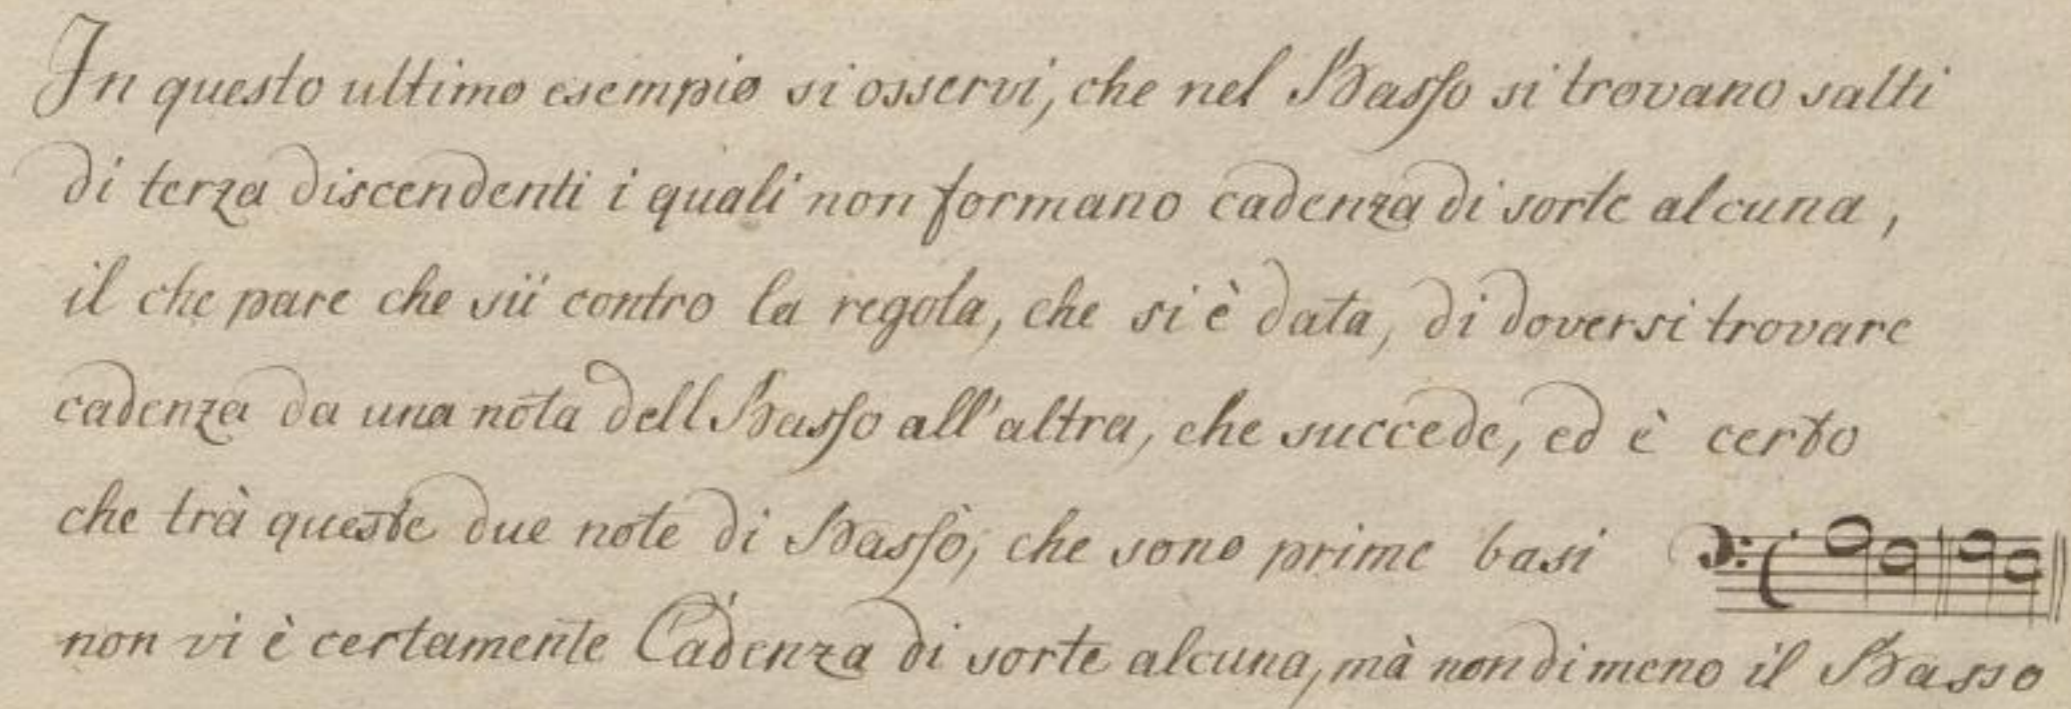 In questo ultimo esempio si osservi, che nel Basso si trovano salti
di terza discendenti i quali non formano cadenza di sorte alcuna,
il che pare che sii contro la regola, che si è data, di doversi trovare
cadenza da una nota dell Basso all'altra, che succede, ed è certo
che trà queste due note di Basso, che sono prime basi
non vi è certamente Cadenza di sorte alcuna, mà nondimeno il Basso